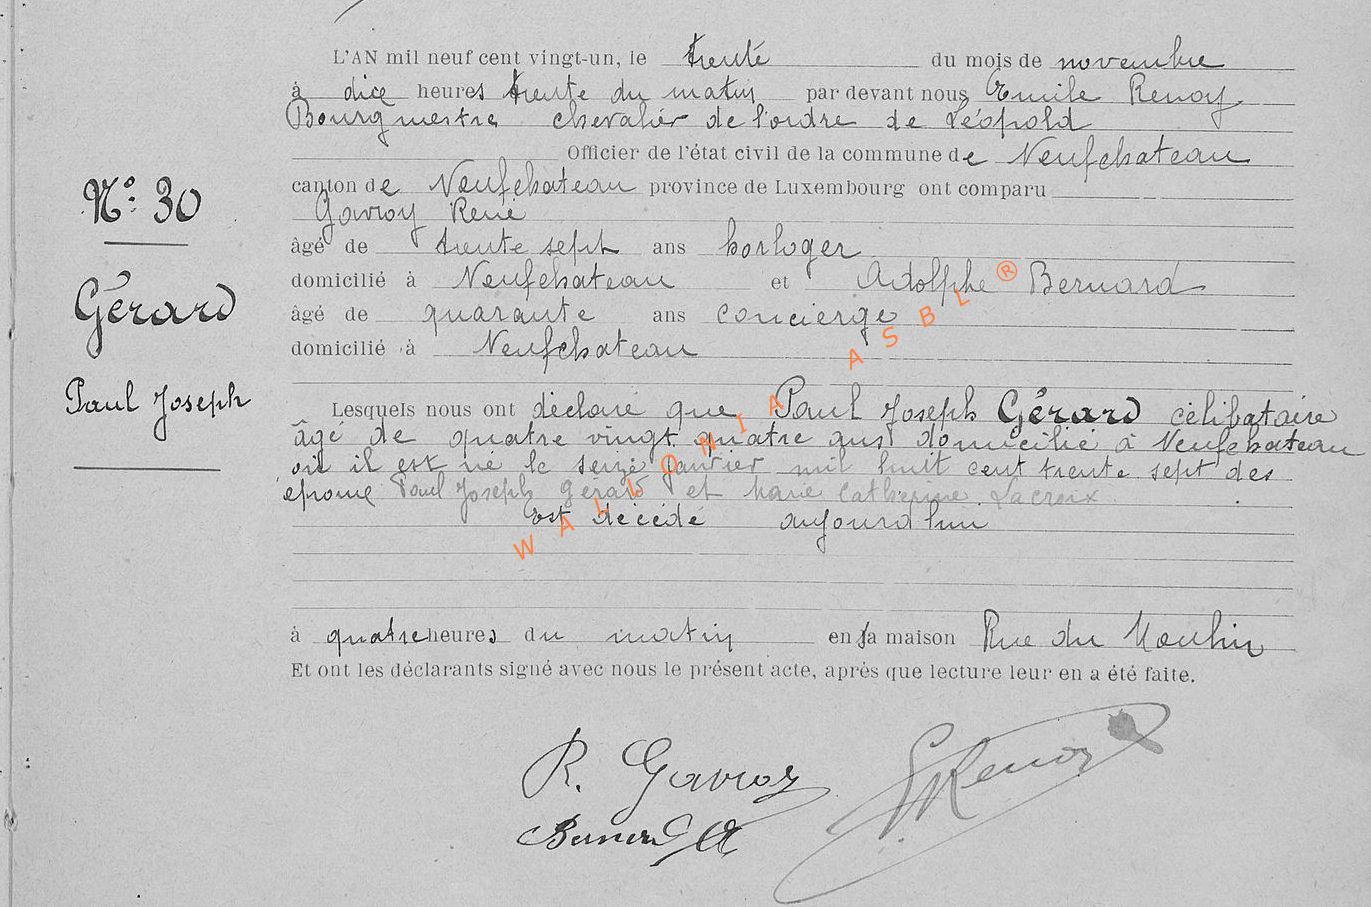 L'AN mil neuf cent vingt-un, le trente du mois de novembre
à dix heures trente du matin par devant nous Emile Renoy
Bourgmestre chevalier de l'ordre de Léopold
Officier de l'état civil de la commune de Neufchateau
canton de Neufchateau province de Luxembourg ont comparu
Gavroy René
âgé de trente sept ans horloger
domicilié à Neufchateau et Adolphe Bernard
âgé de quarante ans concierge
domicilié à Neufchateau
Lesquels nous ont déclaré que Paul Joseph Gérard célibataire
âgé de quatre vingt quatre ans domicilié à Neufchateau
où il est né le seize janvier mil huit cent trente sept des
époux Paul Joseph Gérard et Marie Catherine Lacroix
est décédé aujourd'hui
à quatre heures du matin en sa maison Rue du Moulin
Et ont les déclarants signé avec nous le présent acte, après que lecture leur en a été faite.
N° 30
Gérard
Paul Joseph
R. Gavroy
Bernard A
E Renoy
WALLONIA ASBL ®